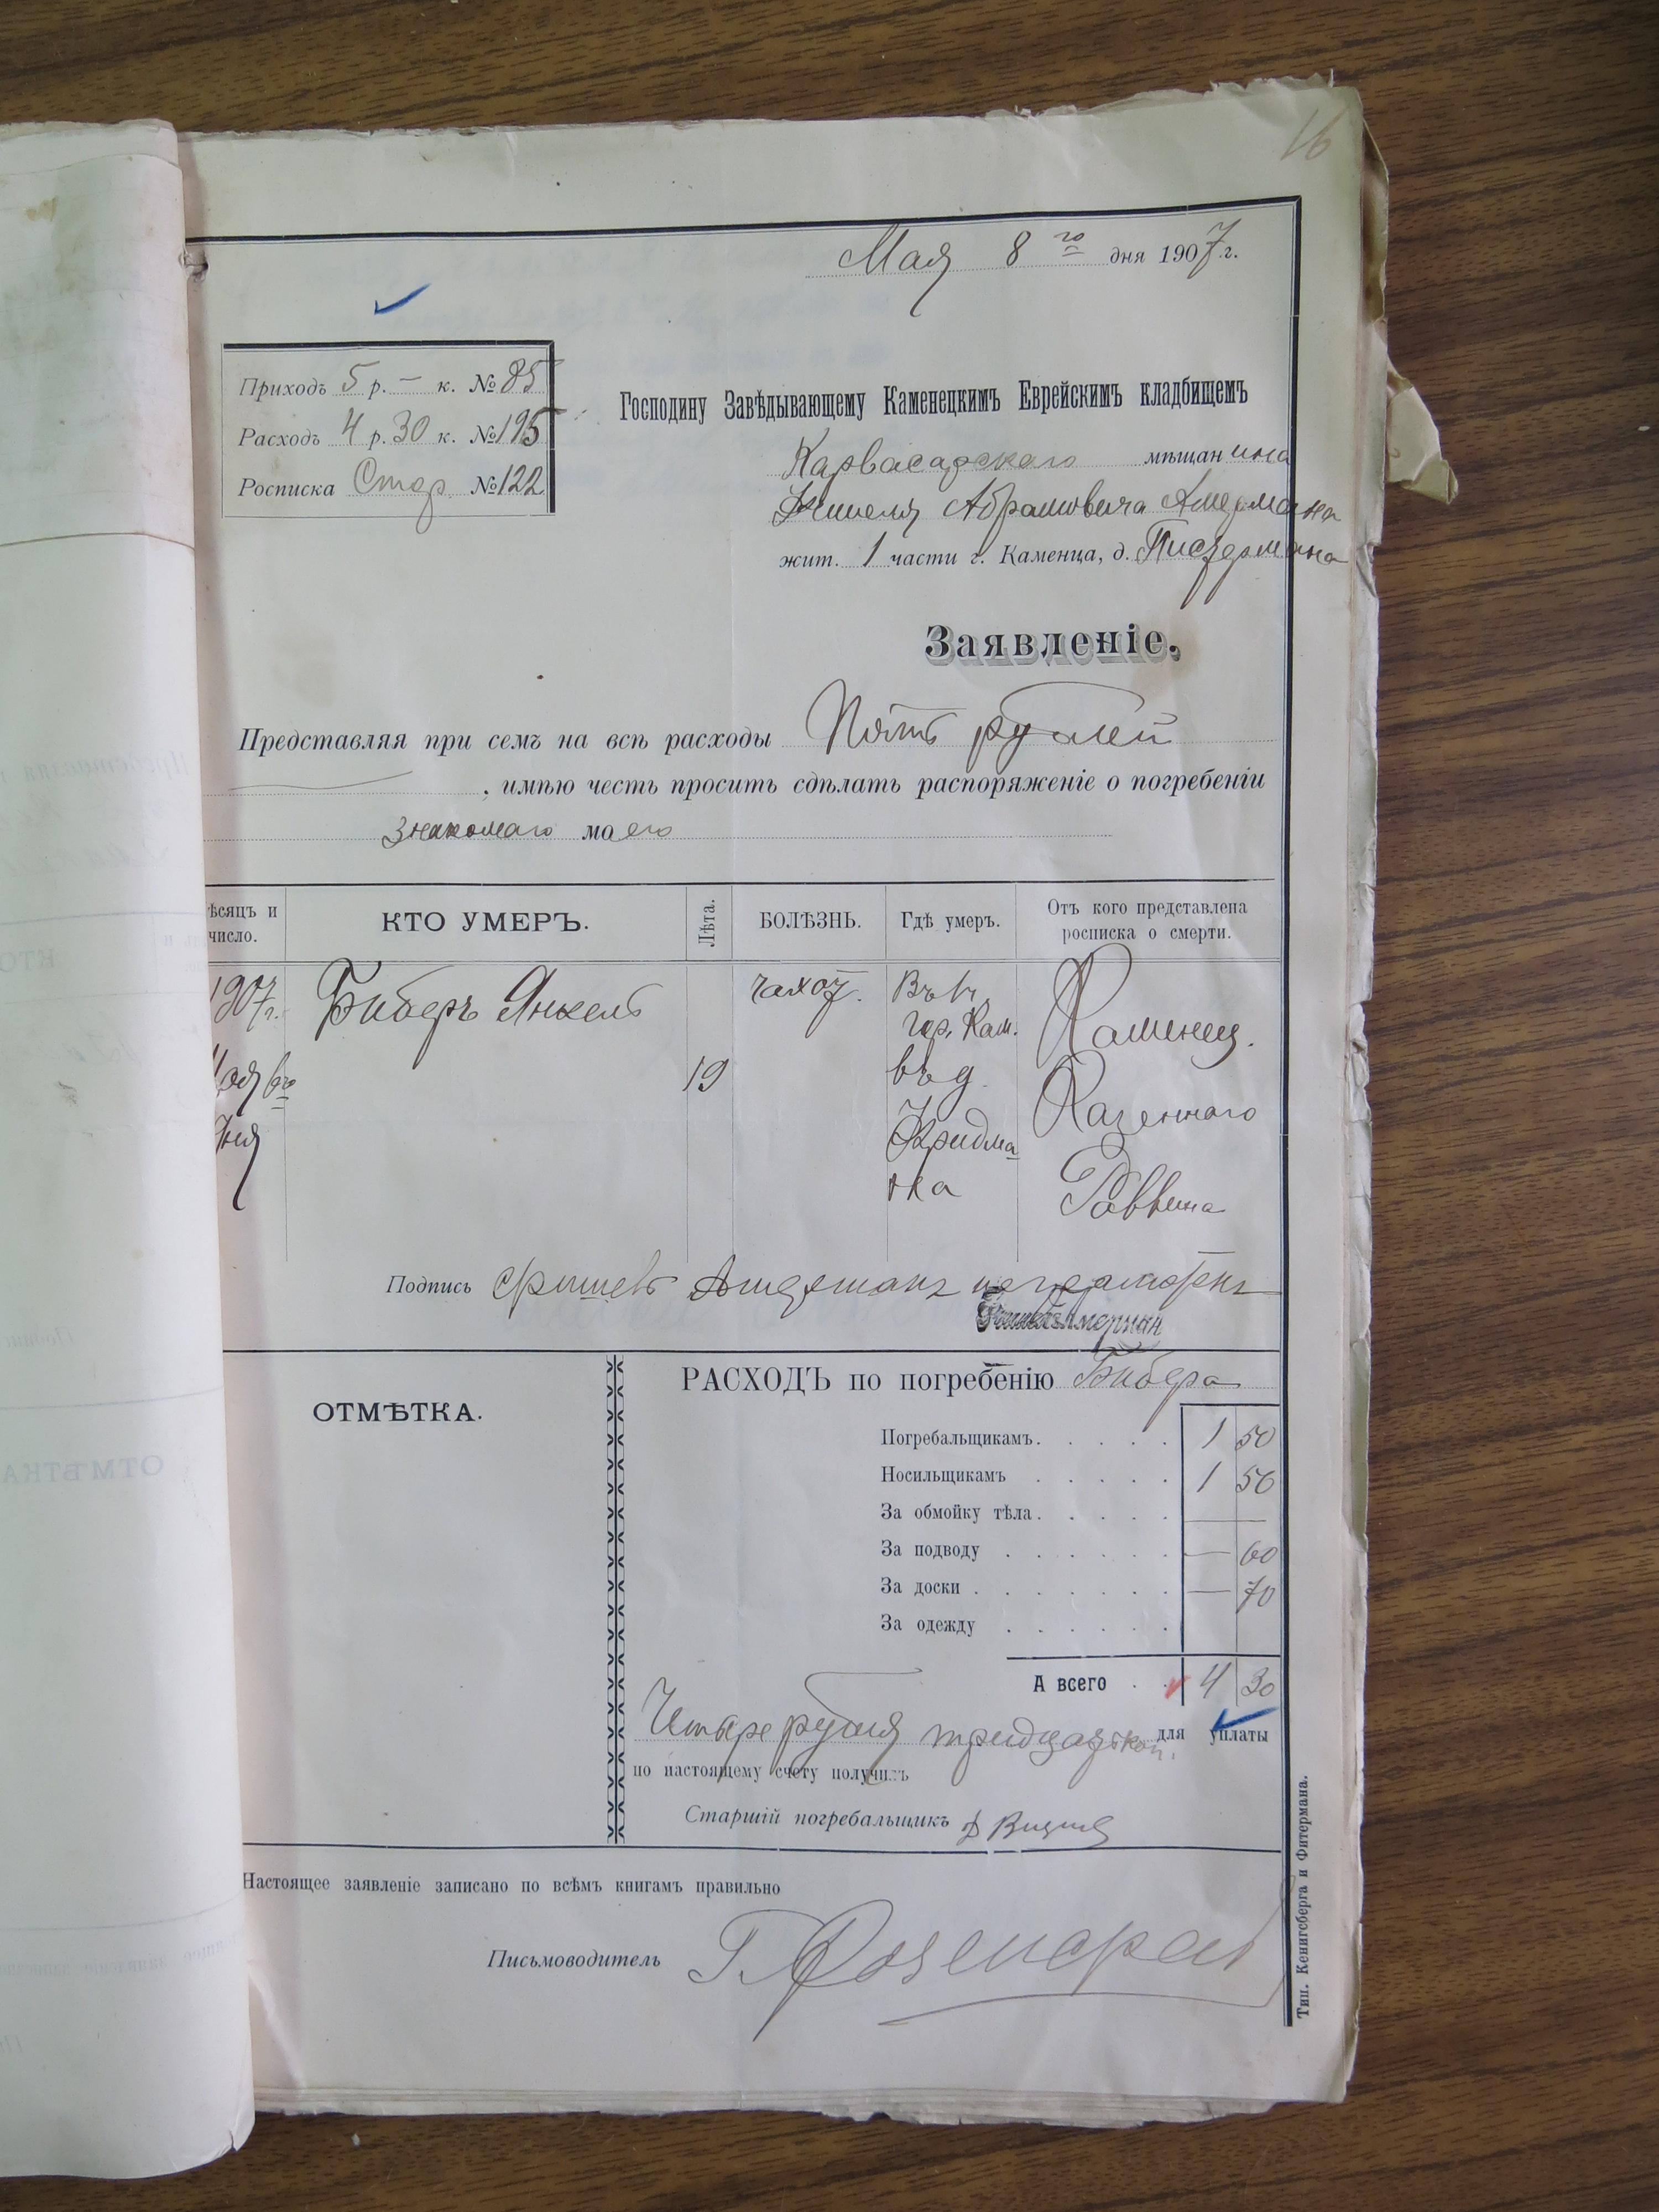 16
Мая 8 го дня 1907 г.
Приходъ 5 р. — к. № 85
Расходъ 4 р. 30 к. № 195
Росписка Стор. № 122
Господину Завѣдывающему Каменецкимъ Еврейскимъ кладбищемъ
Карвасарскаго мѣщанина
Абрамовича
жит. 1 части г. Каменца, д.
Заявленіе.
Представляя при семъ на всѣ расходы Пять рублей
, имѣю честь просить сдѣлать распоряженіе о погребеніи
знакомаго моего
ѣсяцъ и число.
КТО УМЕРЪ.
Лѣта.
БОЛѢЗНЬ.
Гдѣ умеръ.
Отъ кого представлена росписка о смерти.
1907 г.
дня
Биберъ Янкель
19
чахот.
гор. Кам.
въ д.
Фридма
на
Каменец.
Казеннаго
Раввина
Подпись
РАСХОДЪ по погребенію Бибера
ОТМѢТКА.
Погребальщикамъ. 1 50
Носильщикамъ 1 50
За обмойку тѣла. —
За подводу — 60
За доски — 70
За одежду
А всего 4 30
Четыре рубля тридцать коп. для уплаты
по настоящему счету получилъ
Старшій погребальщикъ
Настоящее заявленіе записано по всѣмъ книгамъ правильно
Письмоводитель
Тип. Кенигсберга и Фитермана.